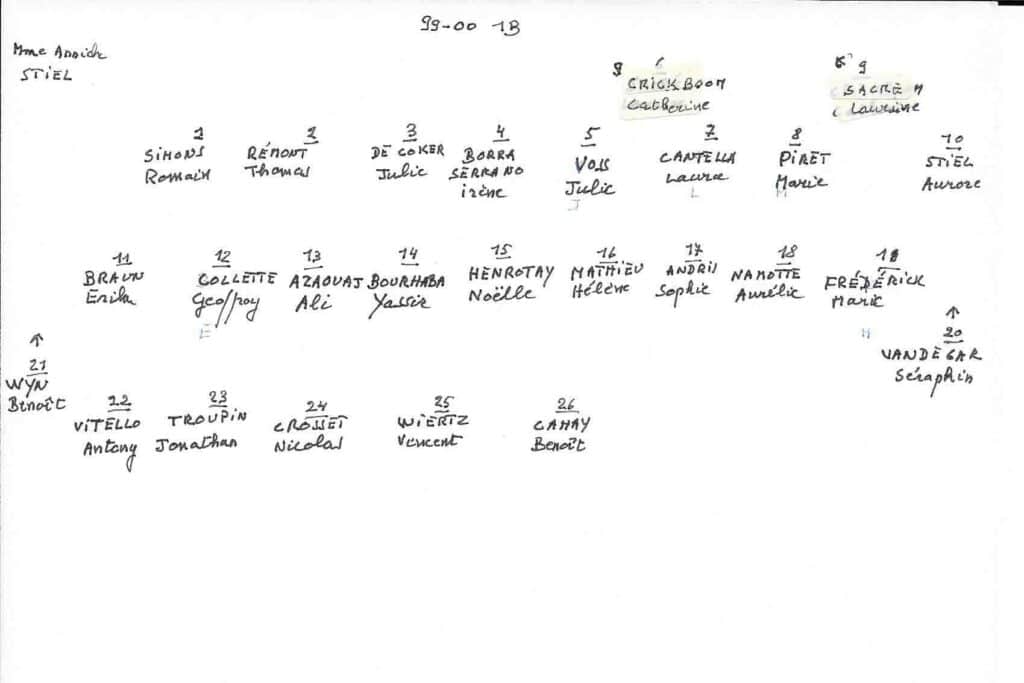 99-00 1B
Mme Annick
STIEL
9 6
CRICKBOOM
Catherine
6 9
SACRÉ
Laurine
1 2 3 4 5 7 8 10
SIMONS RÉMONT DE COKER BORRA VOSS CANTELLA PIRET STIEL
Romain Thomas Julie SERRANO Julie Laura Marie Aurore
Irène
J L M
11 12 13 14 15 16 17 18 19
BRAUN COLLETTE AZAOUAJ BOURHABA HENROTAY MATHIEU ANDRIS NAMOTTE FRÉDÉRICK
Erika Geoffroy Ali Yassir Noëlle Hélène Sophie Aurélie Marie
E M
↑ 20
VANDEGAR
Séraphin
↑ 21
WYN
Benoît
22 23 24 25 26
VITELLO TROUPIN CROSSET WIERTZ CAHAY
Antony Jonathan Nicolas Vincent Benoît